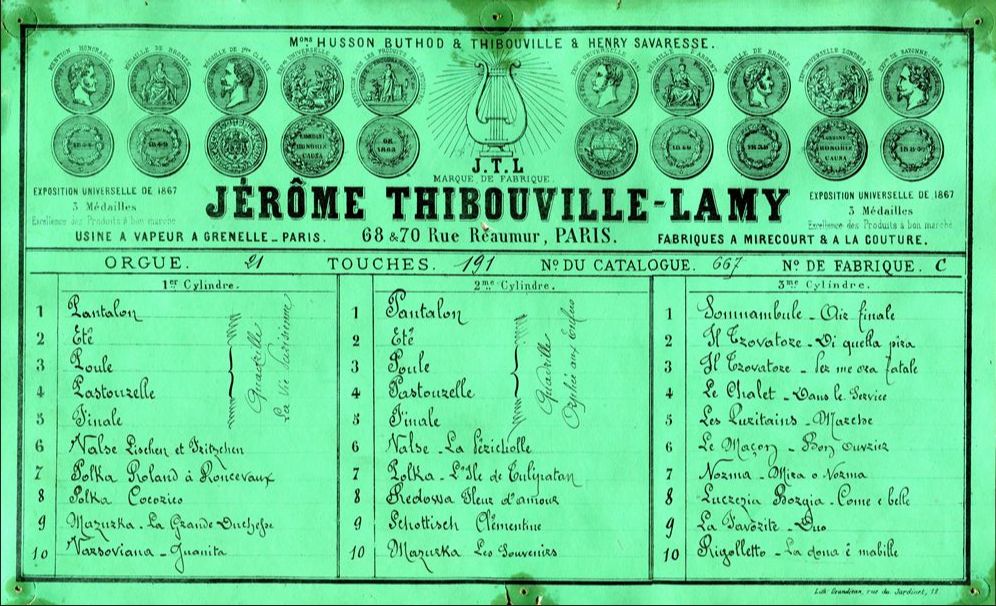 Mons HUSSON BUTHOD & THIBOUVILLE & HENRY SAVARESSE.
J.T.L
MARQUE DE FABRIQUE.
EXPOSITION UNIVERSELLE DE 1867
3 Médailles
Excellence des Produits à bon marché
JÉRÔME THIBOUVILLE-LAMY
EXPOSITION UNIVERSELLE DE 1867
3 Médailles
Excellence des Produits à bon marché
USINE A VAPEUR A GRENELLE_PARIS.
68 & 70 Rue Réaumur, PARIS.
FABRIQUES A MIRECOURT & A LA COUTURE.
ORGUE. 21 TOUCHES. 191 No DU CATALOGUE. 667 No DE FABRIQUE. C
1er Cylindre.
1 Pantalon
2 Eté
3 Poule
4 Pastourelle
5 Finale
Quadrille
La Vie Parisienne
6 Valse Lischen et Fritzchen
7 Polka Roland à Roncevaux
8 Polka Cocorico
9 Mazurka - La Grande Duchesse
10 Varsoviana - Juanita
2me Cylindre.
1 Pantalon
2 Eté
3 Poule
4 Pastourelle
5 Finale
Quadrille
Orphée aux Enfers
6 Valse - La Périchole
7 Polka - L'Ile de Tulipatan
8 Redowa Fleur d'amour
9 Schottisch Clémentine
10 Mazurka Les Souvenirs
3me Cylindre.
1 Somnambule - Air finale
2 Il Trovatore - Di quella pira
3 Il Trovatore - Per me ora fatale
4 Le Chalet - Dans le Service
5 Les Puritains - Marche
6 Le Maçon - Bon Ouvrier
7 Norma - Mira o Norma
8 Lucrezia Borgia - Come e belle
9 La Favorite - Duo
10 Rigolletto - La dona é mabille